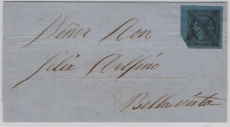 Señor Don
Felix Delfino
Bella vista